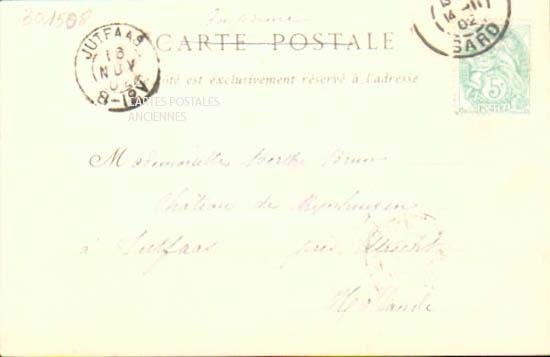 301508
Imprimé
CARTE POSTALE
Ce côté est exclusivement réservé à l'adresse
JUTFAAS
13
NOV
02
8-12V
14
02
SARD
5c
POSTES
CARTES POSTALES
ANCIENNES
Mademoiselle Berthe Brun
Château de
à Jutfaas près Utrecht
Hollande